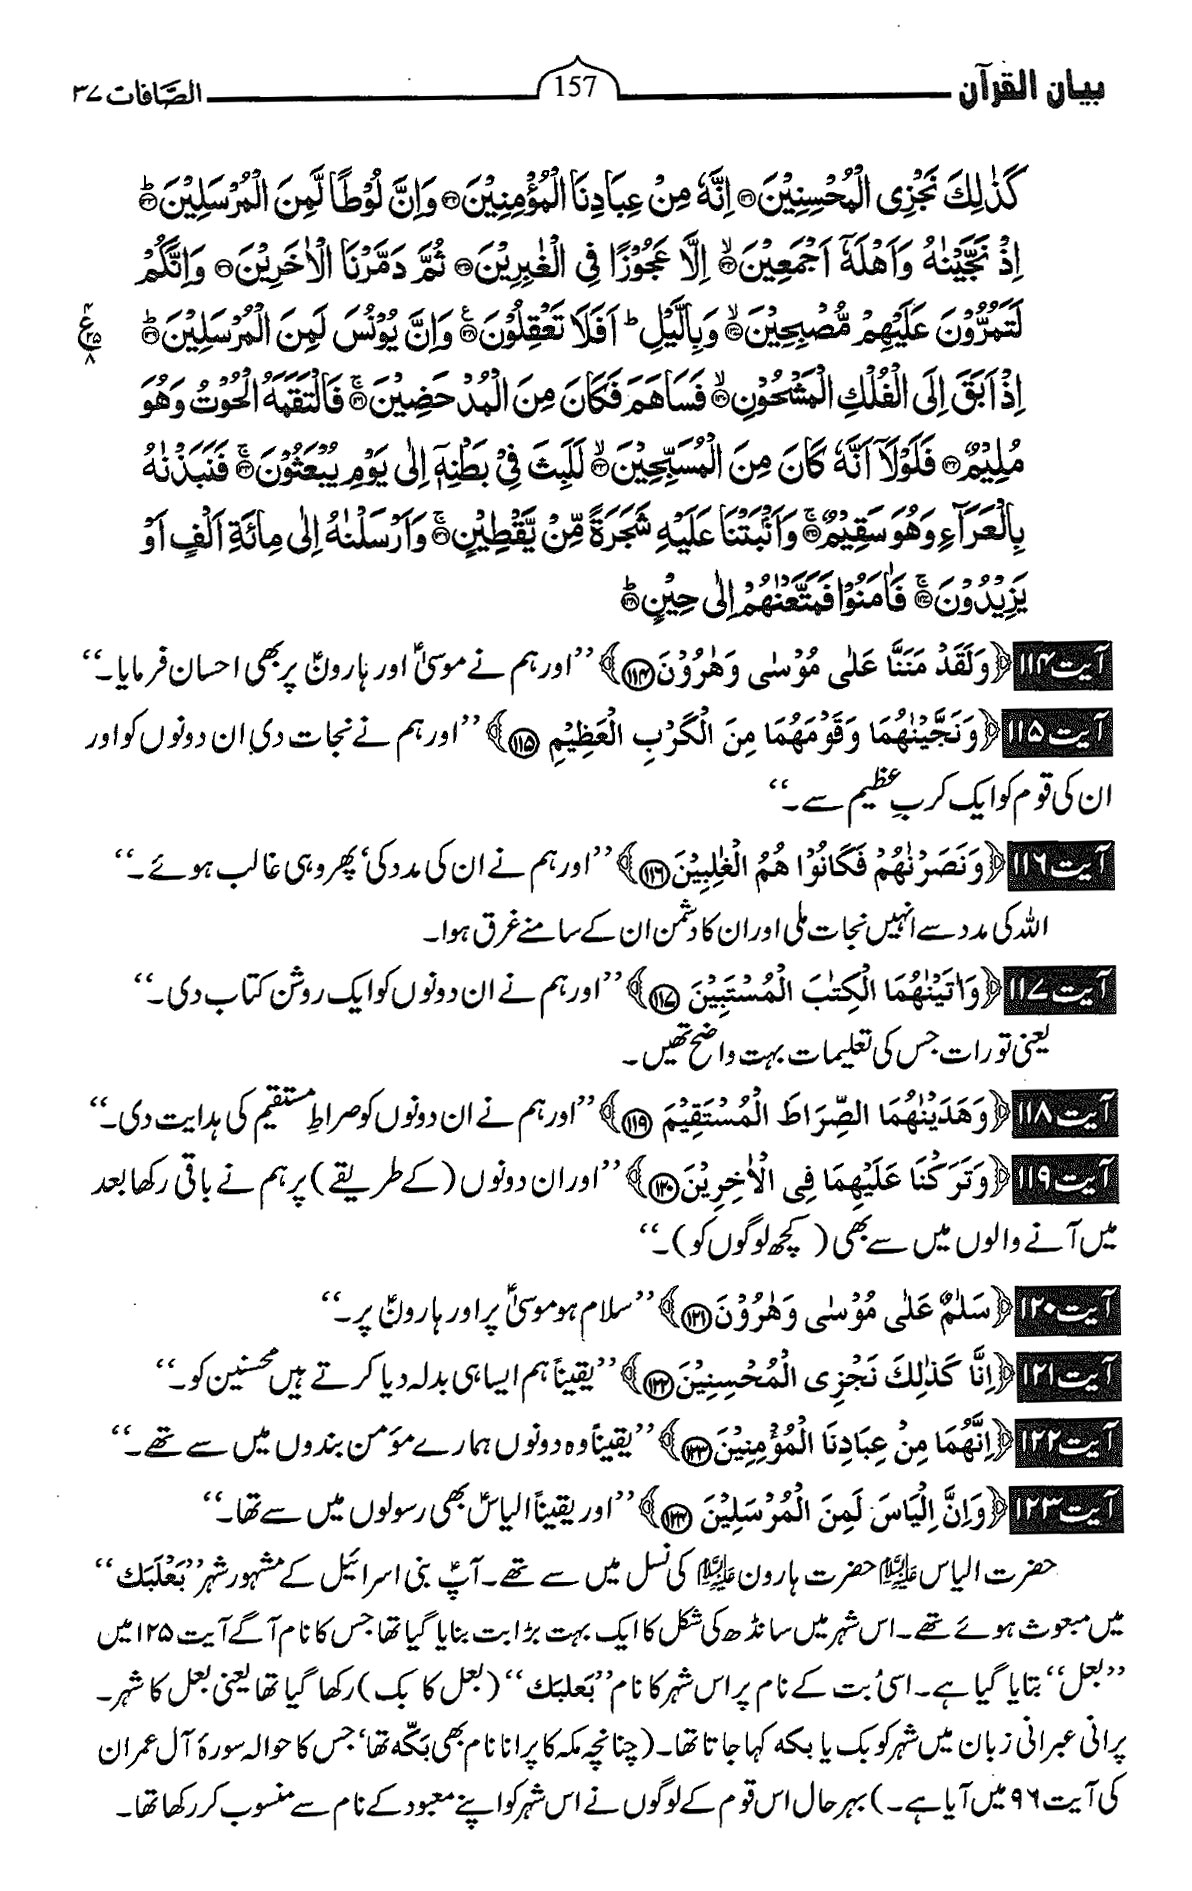 بیان القرآن 157 الصّٰافات ۳۷
كَذٰلِكَ نَجْزِی الْمُحْسِنِیْنَ﴿۱۳۱﴾ اِنَّهٗ مِنْ عِبَادِنَا الْمُؤْمِنِیْنَ﴿۱۳۲﴾ وَاِنَّ لُوْطًا لَّمِنَ الْمُرْسَلِیْنَ﴿۱۳۳﴾ؕ
اِذْ نَجَّیْنٰهُ وَاَهْلَهٗۤ اَجْمَعِیْنَ﴿۱۳۴﴾ۙ اِلَّا عَجُوْزًا فِی الْغٰبِرِیْنَ﴿۱۳۵﴾ ثُمَّ دَمَّرْنَا الْاٰخَرِیْنَ﴿۱۳۶﴾ وَاِنَّكُمْ
لَتَمُرُّوْنَ عَلَیْهِمْ مُّصْبِحِیْنَ﴿۱۳۷﴾ۙ وَبِالَّیْلِ ؕ اَفَلَا تَعْقِلُوْنَ﴿۱۳۸﴾ۧ وَاِنَّ یُوْنُسَ لَمِنَ الْمُرْسَلِیْنَ﴿۱۳۹﴾ؕ
۴ ع ۲۵ ۸
اِذْ اَبَقَ اِلَی الْفُلْكِ الْمَشْحُوْنِ﴿۱۴۰﴾ۙ فَسَاهَمَ فَكَانَ مِنَ الْمُدْحَضِیْنَ﴿۱۴۱﴾ۚ فَالْتَقَمَهُ الْحُوْتُ وَهُوَ
مُلِیْمٌ﴿۱۴۲﴾ فَلَوْلَاۤ اَنَّهٗ كَانَ مِنَ الْمُسَبِّحِیْنَ﴿۱۴۳﴾ۙ لَلَبِثَ فِیْ بَطْنِهٖۤ اِلٰی یَوْمِ یُبْعَثُوْنَ﴿۱۴۴﴾ۚ فَنَبَذْنٰهُ
بِالْعَرَآءِ وَهُوَ سَقِیْمٌ﴿۱۴۵﴾ۚ وَاَنْۢبَتْنَا عَلَیْهِ شَجَرَةً مِّنْ یَّقْطِیْنٍ﴿۱۴۶﴾ۚ وَاَرْسَلْنٰهُ اِلٰی مِائَةِ اَلْفٍ اَوْ
یَزِیْدُوْنَ﴿۱۴۷﴾ۚ فَاٰمَنُوْا فَمَتَّعْنٰهُمْ اِلٰی حِیْنٍ﴿۱۴۸﴾ؕ
آیت ۱۱۴ ﴿وَلَقَدْ مَنَنَّا عَلٰی مُوْسٰی وَهٰرُوْنَ ۱۱۴﴾ ’’اور ہم نے موسیٰؑ اور ہارونؑ پر بھی احسان فرمایا۔‘‘
آیت ۱۱۵ ﴿وَنَجَّیْنٰهُمَا وَقَوْمَهُمَا مِنَ الْكَرْبِ الْعَظِیْمِ ۱۱۵﴾ ’’اور ہم نے نجات دی ان دونوں کو اور
ان کی قوم کو ایک کربِ عظیم سے۔‘‘
آیت ۱۱۶ ﴿وَنَصَرْنٰهُمْ فَكَانُوْا هُمُ الْغٰلِبِیْنَ ۱۱۶﴾ ’’اور ہم نے ان کی مدد کی‘ پھر وہی غالب ہوئے۔‘‘
اللہ کی مدد سے انہیں نجات ملی اور ان کا دشمن ان کے سامنے غرق ہوا۔
آیت ۱۱۷ ﴿وَاٰتَیْنٰهُمَا الْكِتٰبَ الْمُسْتَبِیْنَ ۱۱۷﴾ ’’اور ہم نے ان دونوں کو ایک روشن کتاب دی۔‘‘
یعنی تورات جس کی تعلیمات بہت واضح تھیں۔
آیت ۱۱۸ ﴿وَهَدَیْنٰهُمَا الصِّرَاطَ الْمُسْتَقِیْمَ ۱۱۹﴾ ’’اور ہم نے ان دونوں کو صراطِ مستقیم کی ہدایت دی۔‘‘
آیت ۱۱۹ ﴿وَتَرَكْنَا عَلَیْهِمَا فِی الْاٰخِرِیْنَ ۱۲۰﴾ ’’اور ان دونوں (کے طریقے) پر ہم نے باقی رکھا بعد
میں آنے والوں میں سے بھی (کچھ لوگوں کو)۔‘‘
آیت ۱۲۰ ﴿سَلٰمٌ عَلٰی مُوْسٰی وَهٰرُوْنَ ۱۲۱﴾ ’’سلام ہو موسیٰؑ پر اور ہارونؑ پر۔‘‘
آیت ۱۲۱ ﴿اِنَّا كَذٰلِكَ نَجْزِی الْمُحْسِنِیْنَ ۱۲۲﴾ ’’یقیناً ہم ایسا ہی بدلہ دیا کرتے ہیں محسنین کو۔‘‘
آیت ۱۲۲ ﴿اِنَّهُمَا مِنْ عِبَادِنَا الْمُؤْمِنِیْنَ ۱۲۳﴾ ’’یقیناً وہ دونوں ہمارے مؤمن بندوں میں سے تھے۔‘‘
آیت ۱۲۳ ﴿وَاِنَّ اِلْیَاسَ لَمِنَ الْمُرْسَلِیْنَ ۱۲۴﴾ ’’اور یقیناً الیاسؑ بھی رسولوں میں سے تھا۔‘‘
حضرت الیاس علیہ السلام حضرت ہارون علیہ السلام کی نسل میں سے تھے۔ آپؑ بنی اسرائیل کے مشہور شہر ’’بَعْلَبَك‘‘
میں مبعوث ہوئے تھے۔ اس شہر میں سانڈھ کی شکل کا ایک بہت بڑا بت بنایا گیا تھا جس کا نام آگے آیت ۱۲۵ میں
’’بعل‘‘ بتایا گیا ہے۔ اسی بُت کے نام پر اس شہر کا نام ’’بَعلبَك‘‘ (بعل کا بک) رکھا گیا تھا یعنی بعل کا شہر۔
پرانی عبرانی زبان میں شہر کو بک یا بکہ کہا جاتا تھا۔ (چنانچہ مکہ کا پرانا نام بھی بَكّه تھا‘ جس کا حوالہ سورۂ آل عمران
کی آیت ۹۶ میں آیا ہے۔) بہرحال اس قوم کے لوگوں نے اس شہر کو اپنے معبود کے نام سے منسوب کر رکھا تھا۔